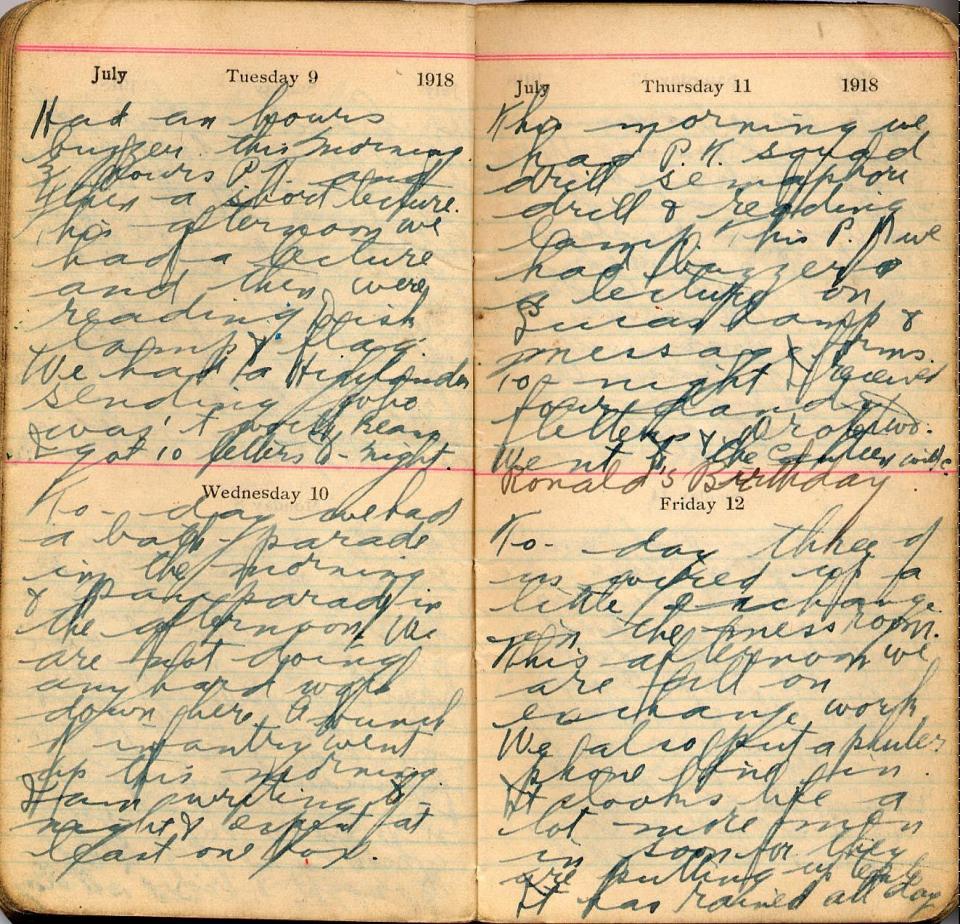 July Tuesday 9 1918
Had an hours
buzzer this morning
¾ hours P.T. and
then a short lecture.
This afternoon we
had a lecture
and then were
reading Disk
lamp & flag.
We had a Highlander
sending who
was't well
I got 10 letters to-night.
Wednesday 10
To-day we had
a bath parade
in the morning
& pay parade in
the afternoon. We
are not doing
any hard work
down here. A bunch
of infantry went
up this morning.
I am writing to
night & expect at
least one box.
July Thursday 11 1918
This morning we
had P.T. squad
drill semaphore
drill & reading
lamp. This P.M we
had buzzer &
a lecture on
Lucas lamp &
message forms.
To night I received
four
letters & wrote two.
Went to the Canteen
Ronald's Birthday
Friday 12
To-day three of
us wired up a
little exchange
in the mess room.
This afternoon we
are all on
exchange work
We also put a
phone line in.
It looks like a
lot more men
in soon for they
are putting up
It has rained all day